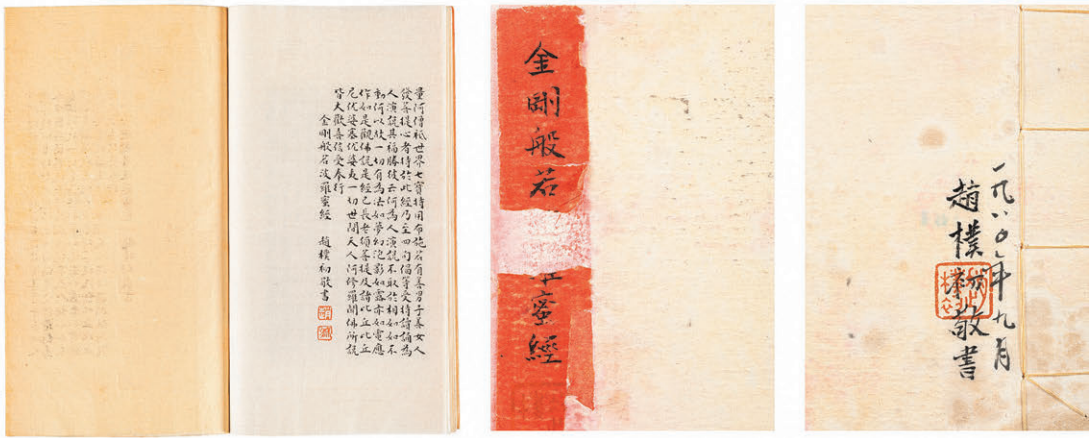 量阿僧祇世界七寶持用布施若有善男子善女人
發菩提心者持於此經乃至四句偈等受持讀誦為
人演說其福勝彼云何為人演說不取於相如如不
動何以故一切有為法如夢幻泡影如露亦如電應
作如是觀佛說是經已長老須菩提及諸比丘比丘
尼优婆塞优婆夷一切世間天人阿修羅聞佛所說
皆大歡喜信受奉行
金剛般若波羅蜜經 趙樸初敬書
金剛般若 蜜經
一九八〇年九月
趙樸初敬書